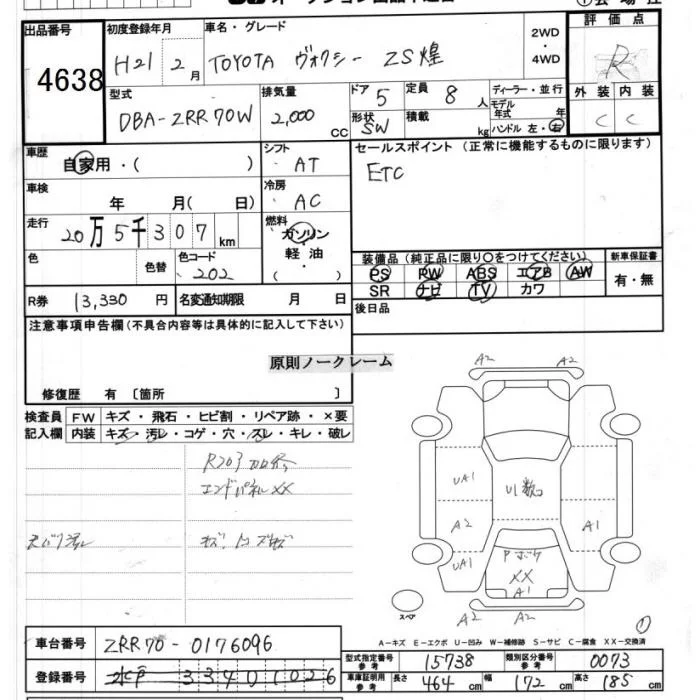 出品番号 初度登録年月 車名・グレード 2WD・4WD 評価点
4638 H21 2月 TOYOTA ヴォクシー ZS煌 R
型式 排気量 ドア 5 定員 8人 ディーラー・並行 外装 内装
DBA-ZRR70W 2,000cc 形状 SW 積載 kg モデル年式 年 ハンドル 左・右 C C
車歴 自家用・( ) シフト AT セールスポイント (正常に機能するものに限ります)
車検 年 月( 日) 冷房 AC ETC
走行 20万5千307km 燃料 ガソリン・軽油・( )
色 色替 色コード 202 装備品 (純正品に限り○をつけてください) 新車保証書
PS PW ABS エアB AW 有・無
SR ナビ TV カワ
R券 13,330円 名変通知期限 月 日 後日品
注意事項申告欄(不具合内容等は具体的に記入して下さい)
原則ノークレーム
修復歴 有 〔箇所 〕
検査員 FW キズ・飛石・ヒビ割・リペア跡・×要
記入欄 内装 キズ・汚レ・コゲ・穴・スレ・キレ・破レ
エンドパネルXX
A2 A2
UA1 U1数
A2 A1
UA1 XX
A1
A2 A2
スペア
①
A-キズ E-エクボ U-凹み W-補修跡 S-サビ C-腐食 XX-交換済
車台番号 ZRR70-0176096 型式指定番号 参考 15738 類別区分番号 参考 0073
登録番号 水戸 334 1026 車庫証明用 参考 長さ 464cm 幅 172cm 高さ 185cm